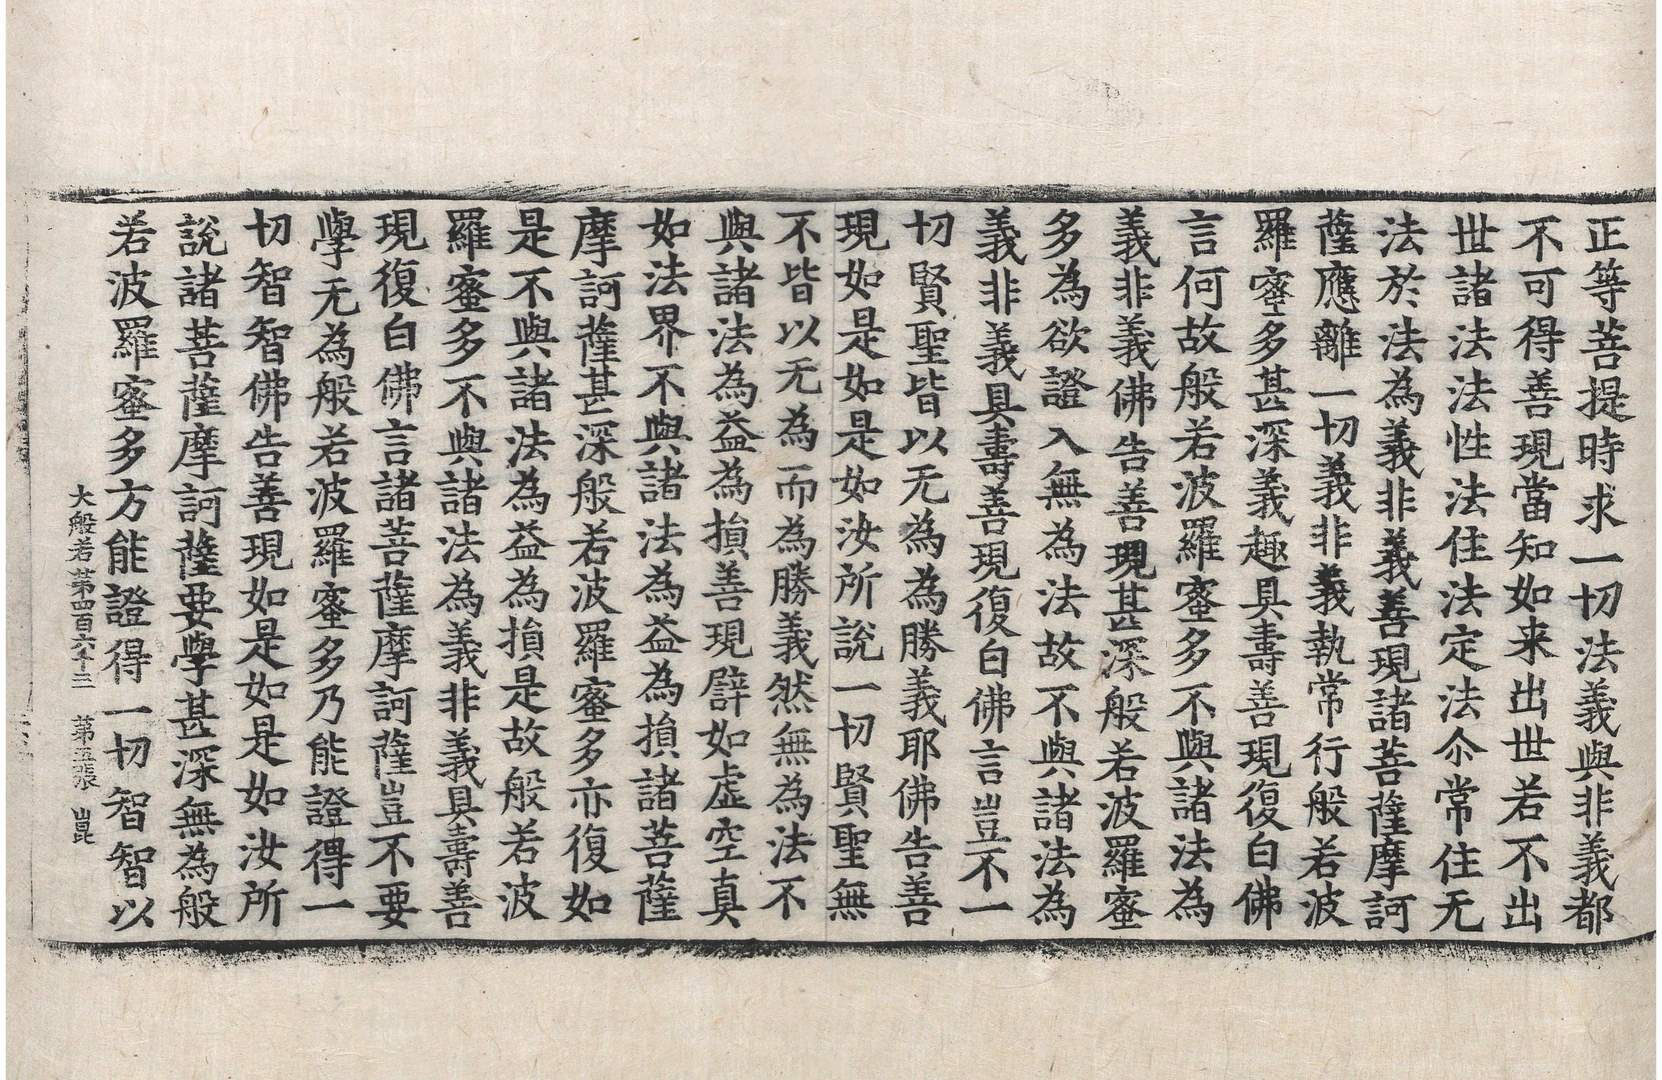 正等菩提時求一切法義與非義都
不可得善現當知如来出世若不出
世諸法法性法住法定法尒常住无
法於法為義非義善現諸菩薩摩訶
薩應離一切義非義執常行般若波
羅蜜多甚深義趣具壽善現復白佛
言何故般若波羅蜜多不與諸法為
義非義佛告善現甚深般若波羅蜜
多為欲證入無為法故不與諸法為
義非義具壽善現復白佛言豈不一
切賢聖皆以无為為勝義耶佛告善
現如是如是如汝所說一切賢聖無
不皆以无為而為勝義然無為法不
與諸法為益為損善現譬如虛空真
如法界不與諸法為益為損諸菩薩
摩訶薩甚深般若波羅蜜多亦復如
是不與諸法為益為損是故般若波
羅蜜多不與諸法為義非義具壽善
現復白佛言諸菩薩摩訶薩豈不要
學无為般若波羅蜜多乃能證得一
切智智佛告善現如是如是如汝所
說諸菩薩摩訶薩要學甚深無為般
若波羅蜜多方能證得一切智智以
大般若第四百六十三 第五張 崑